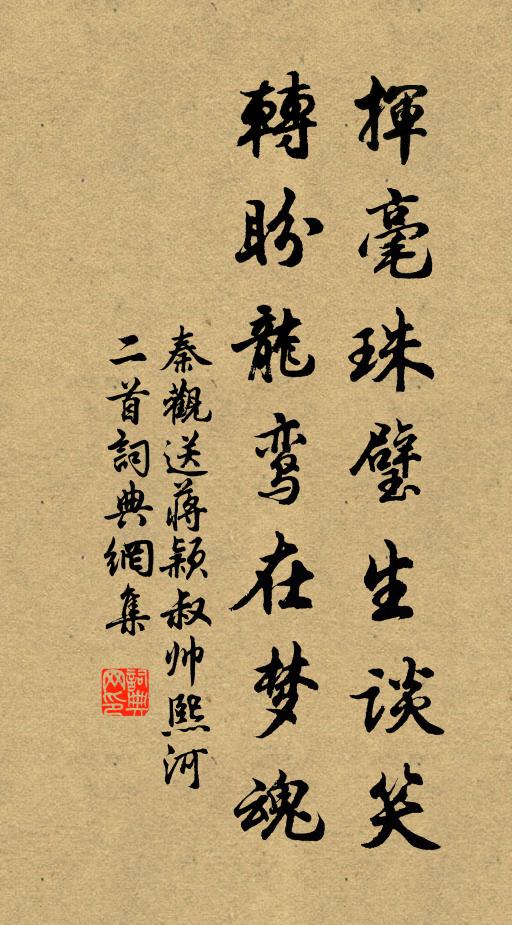 揮毫珠璧生谈笑
轉盼龍鸾在梦魂
秦觀送蔣颖叔帅熙河
二首詞典網集
詞典网印